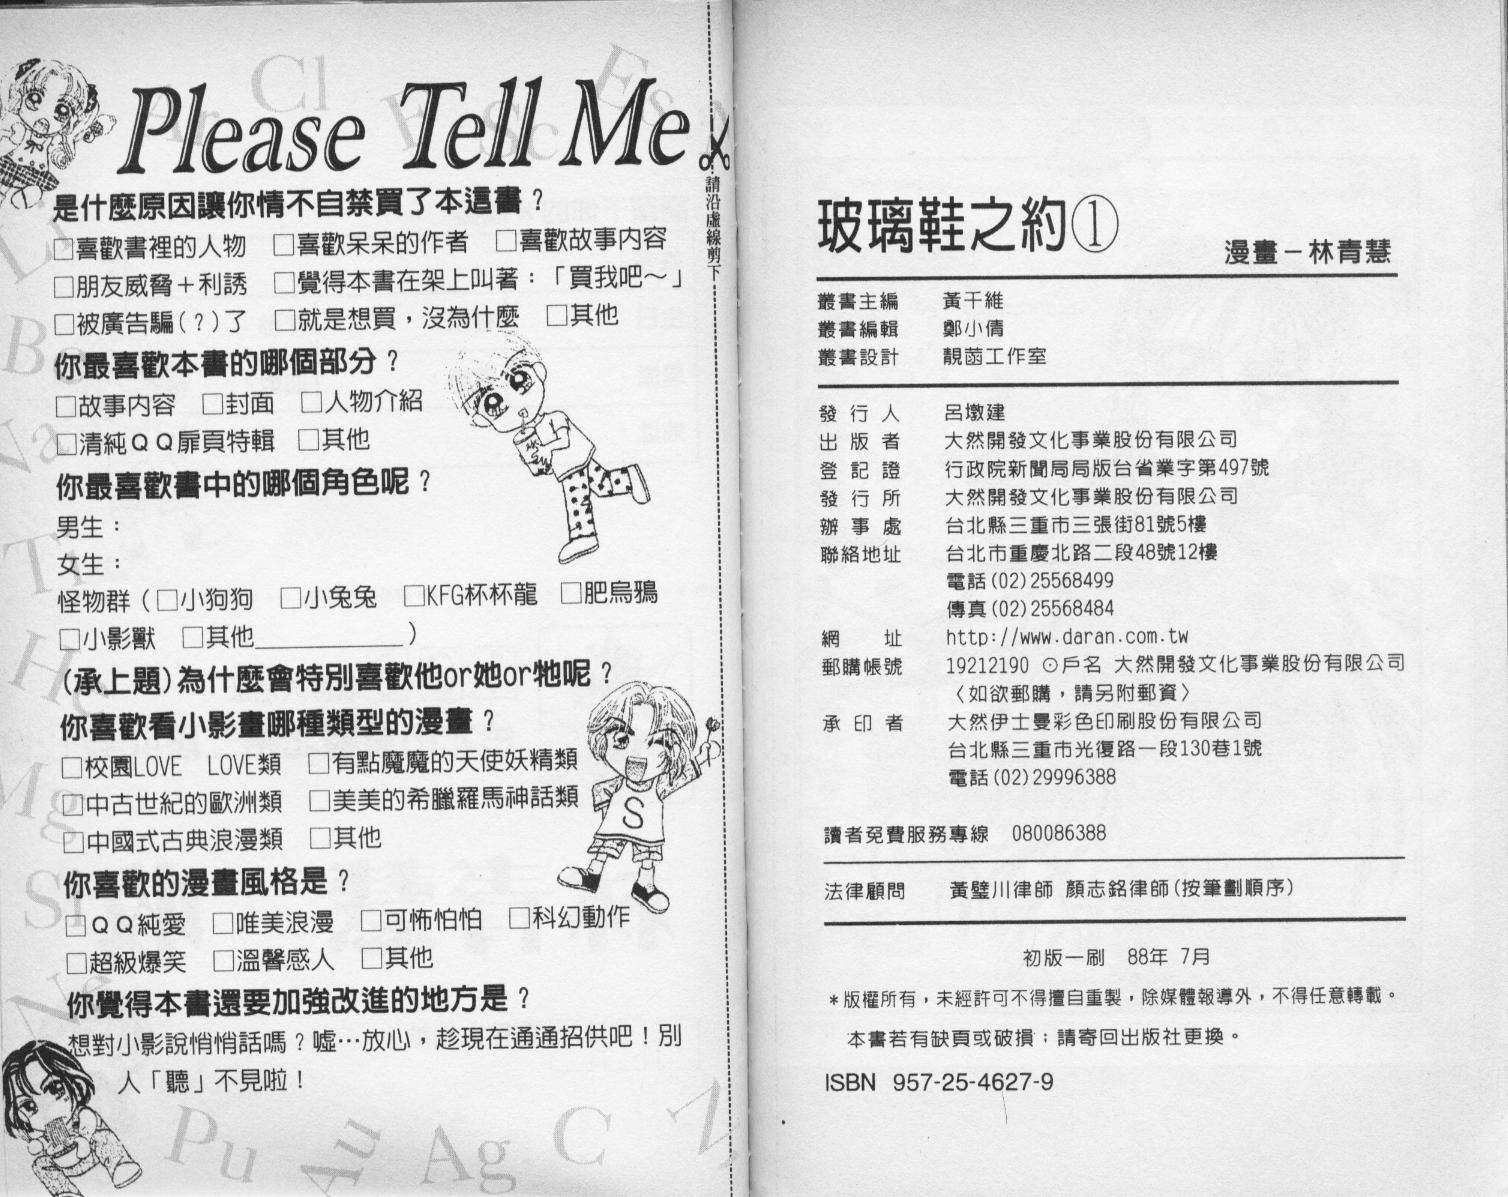 Please Tell Me
請沿虛線剪下
是什麼原因讓你情不自禁買了本這書？
□喜歡書裡的人物　□喜歡呆呆的作者　□喜歡故事內容
□朋友威脅＋利誘　□覺得本書在架上叫著：「買我吧～」
□被廣告騙(？)了　□就是想買，沒為什麼　□其他
你最喜歡本書的哪個部分？
□故事內容　□封面　□人物介紹
□清純ＱＱ扉頁特輯　□其他
你最喜歡書中的哪個角色呢？
男生：
女生：
怪物群（□小狗狗　□小兔兔　□KFG杯杯龍　□肥烏鴉
□小影獸　□其他____________）
(承上題)為什麼會特別喜歡他or她or牠呢？
你喜歡看小影畫哪種類型的漫畫？
□校園LOVE　LOVE類　□有點魔魔的天使妖精類
□中古世紀的歐洲類　□美美的希臘羅馬神話類
□中國式古典浪漫類　□其他
你喜歡的漫畫風格是？
□ＱＱ純愛　□唯美浪漫　□可怖怕怕　□科幻動作
□超級爆笑　□溫馨感人　□其他
你覺得本書還要加強改進的地方是？
想對小影說悄悄話嗎？噓…放心，趁現在通通招供吧！別
人「聽」不見啦！
S
Cl
Ti
Mg
Pu
Au
Ag
C
玻璃鞋之約①
漫畫－林青慧
叢書主編　黃千維
叢書編輯　鄭小倩
叢書設計　靚菡工作室
發行人　呂墩建
出版者　大然開發文化事業股份有限公司
登記證　行政院新聞局局版台省業字第497號
發行所　大然開發文化事業股份有限公司
辦事處　台北縣三重市三張街81號5樓
聯絡地址　台北市重慶北路二段48號12樓
電話(02)25568499
傳真(02)25568484
網　址　http://www.daran.com.tw
郵購帳號　19212190 ⊙戶名 大然開發文化事業股份有限公司
〈如欲郵購，請另附郵資〉
承印者　大然伊士曼彩色印刷股份有限公司
台北縣三重市光復路一段130巷1號
電話(02)29996388
讀者免費服務專線　080086388
法律顧問　黃璧川律師 顏志銘律師(按筆劃順序)
初版一刷　88年 7月
＊版權所有，未經許可不得擅自重製，除媒體報導外，不得任意轉載。
本書若有缺頁或破損：請寄回出版社更換。
ISBN 957-25-4627-9